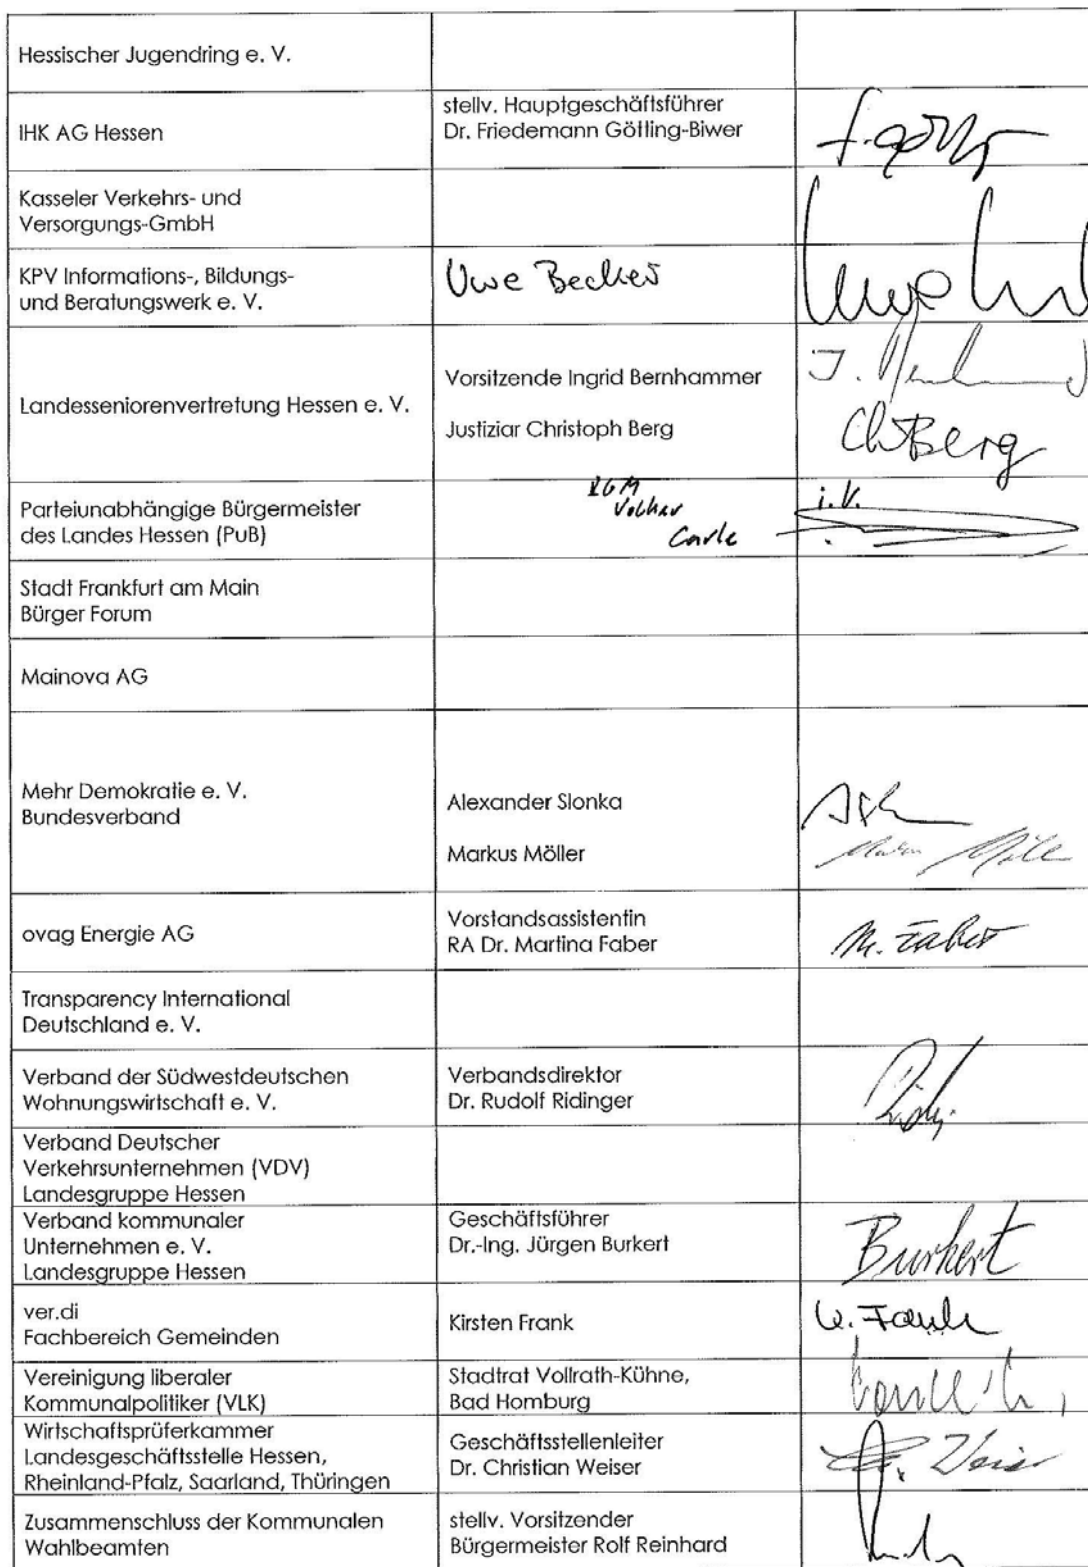 Hessischer Jugendring e. V.
IHK AG Hessen
stellv. Hauptgeschäftsführer
Dr. Friedemann Götting-Biwer
Kasseler Verkehrs- und
Versorgungs-GmbH
KPV Informations-, Bildungs-
und Beratungswerk e. V.
Uwe Becker
Uwe
Landesseniorenvertretung Hessen e. V.
Vorsitzende Ingrid Bernhammer
Justiziar Christoph Berg
Ch. Berg
Parteiunabhängige Bürgermeister
des Landes Hessen (PuB)
Volker
Carle
i.V.
Stadt Frankfurt am Main
Bürger Forum
Mainova AG
Mehr Demokratie e. V.
Bundesverband
Alexander Slonka
Markus Möller
ovag Energie AG
Vorstandsassistentin
RA Dr. Martina Faber
M. Faber
Transparency International
Deutschland e. V.
Verband der Südwestdeutschen
Wohnungswirtschaft e. V.
Verbandsdirektor
Dr. Rudolf Ridinger
Verband Deutscher
Verkehrsunternehmen (VDV)
Landesgruppe Hessen
Verband kommunaler
Unternehmen e. V.
Landesgruppe Hessen
Geschäftsführer
Dr.-Ing. Jürgen Burkert
Burkert
ver.di
Fachbereich Gemeinden
Kirsten Frank
K. Frank
Vereinigung liberaler
Kommunalpolitiker (VLK)
Stadtrat Vollrath-Kühne,
Bad Homburg
Wirtschaftsprüferkammer
Landesgeschäftsstelle Hessen,
Rheinland-Pfalz, Saarland, Thüringen
Geschäftsstellenleiter
Dr. Christian Weiser
Weiser
Zusammenschluss der Kommunalen
Wahlbeamten
stellv. Vorsitzender
Bürgermeister Rolf Reinhard